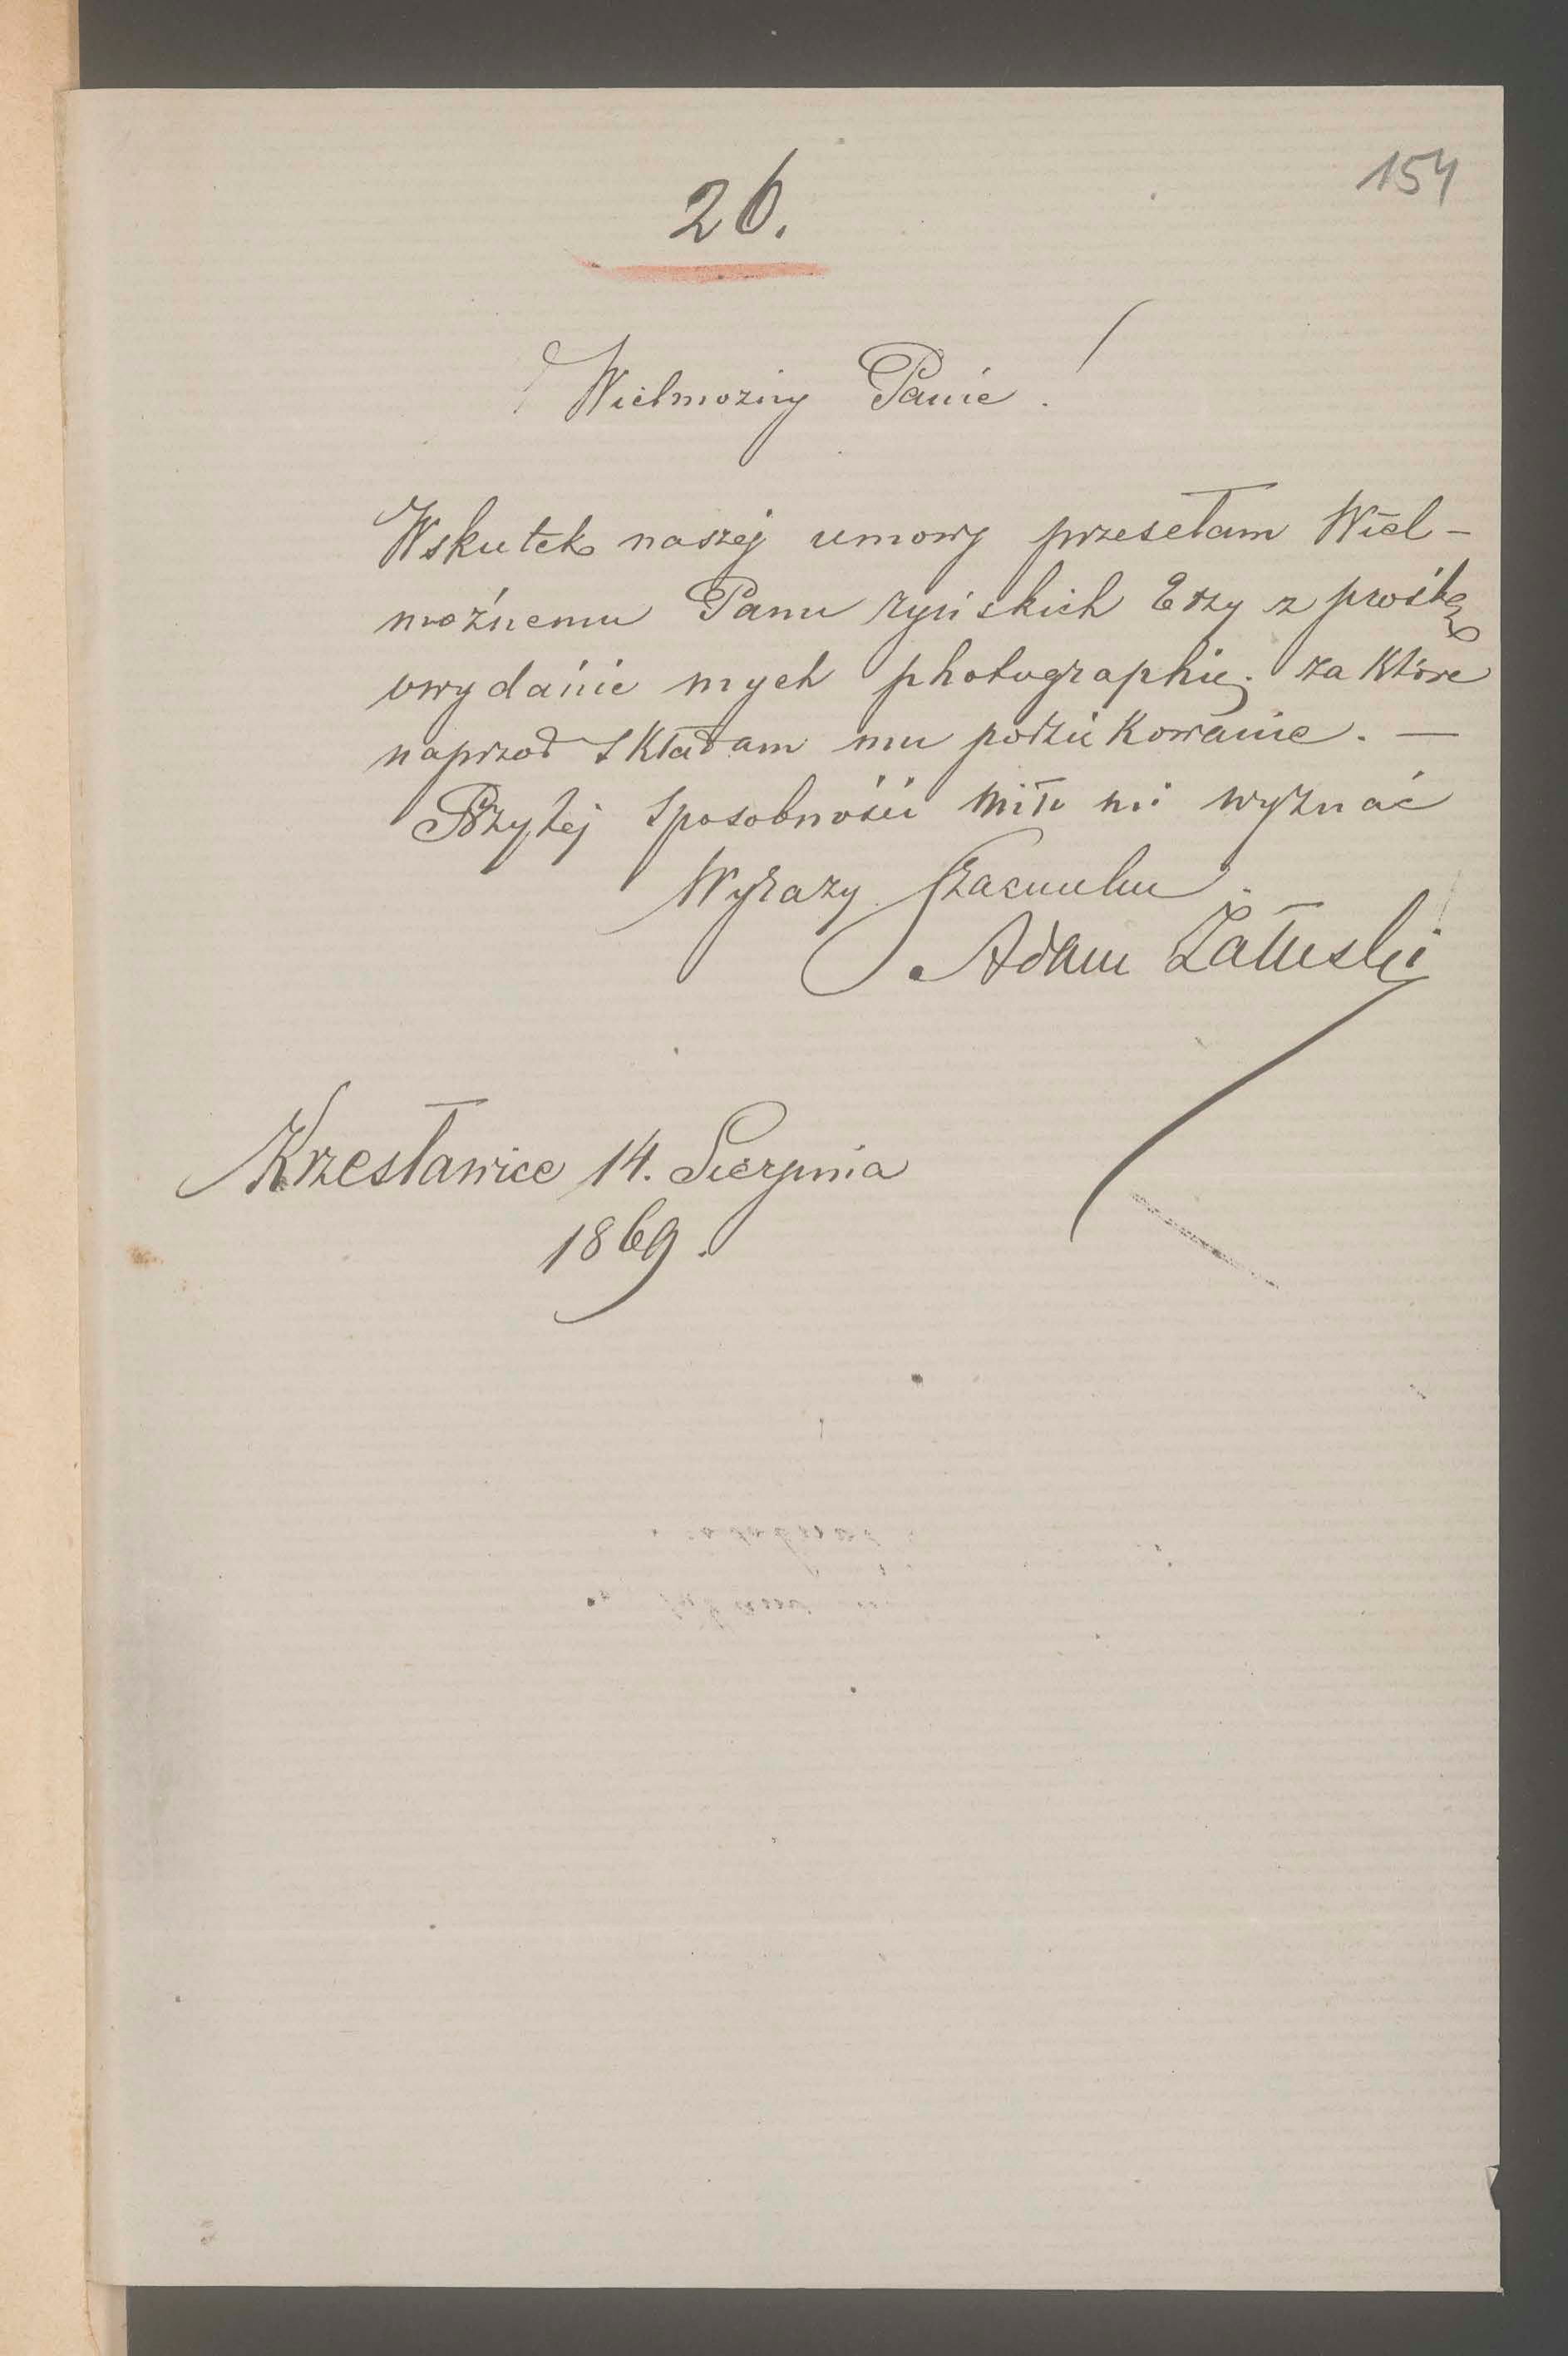 154
26.
Wielmożny Panie!
Wskutek naszej umowy przesełam Wiel-
możnemu Panu ryńskich trzy z prośbą
owydanie mych photographię. za które
naprzod składam mu podziękowanie. —
Przytej sposobności miło mi wyznać
Wyrazy szacunku.
Adam Załuski
Krzesławice 14. Sierpnia
1869.